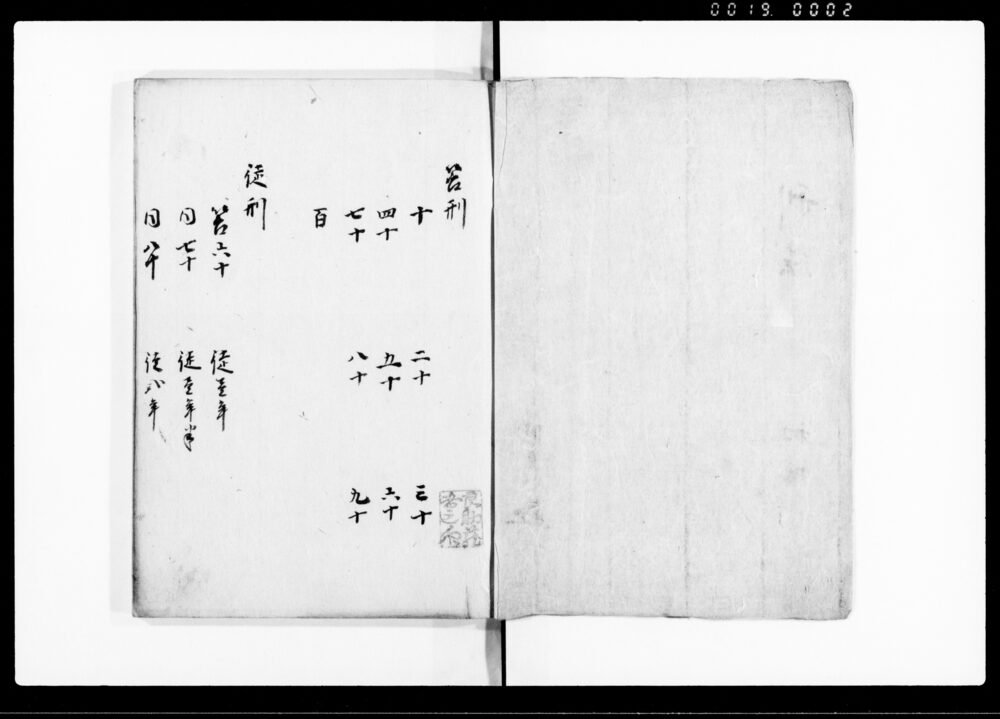 0019 0002
笞刑
十 二十 三十
四十 五十 六十
七十 八十 九十
百
徒刑
笞六十 徒壱年
同七十 徒壱年半
同八十 徒弐年